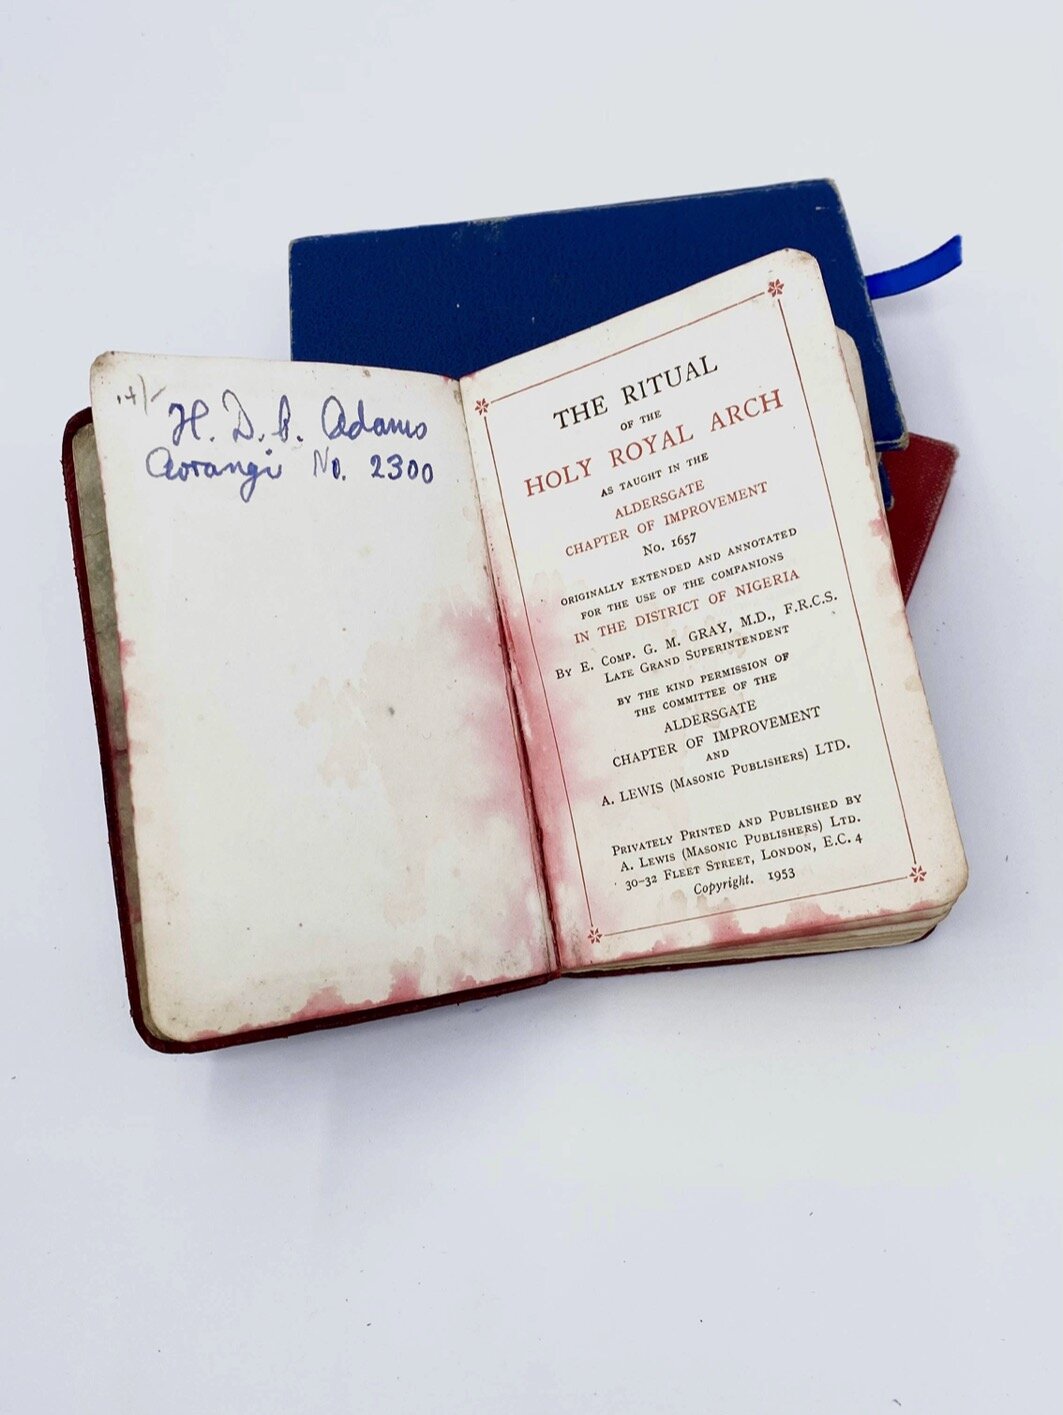 14/-
H. D. B. Adams
Aorangi No. 2300
THE RITUAL
OF THE
HOLY ROYAL ARCH
AS TAUGHT IN THE
ALDERSGATE
CHAPTER OF IMPROVEMENT
No. 1657
ORIGINALLY EXTENDED AND ANNOTATED
FOR THE USE OF THE COMPANIONS
IN THE DISTRICT OF NIGERIA
By E. Comp. G. M. GRAY, M.D., F.R.C.S.
Late Grand Superintendent
BY THE KIND PERMISSION OF
THE COMMITTEE OF THE
ALDERSGATE
CHAPTER OF IMPROVEMENT
AND
A. LEWIS (Masonic Publishers) LTD.
Privately Printed and Published by
A. Lewis (Masonic Publishers) Ltd.
30-32 Fleet Street, London, E.C. 4
Copyright. 1953